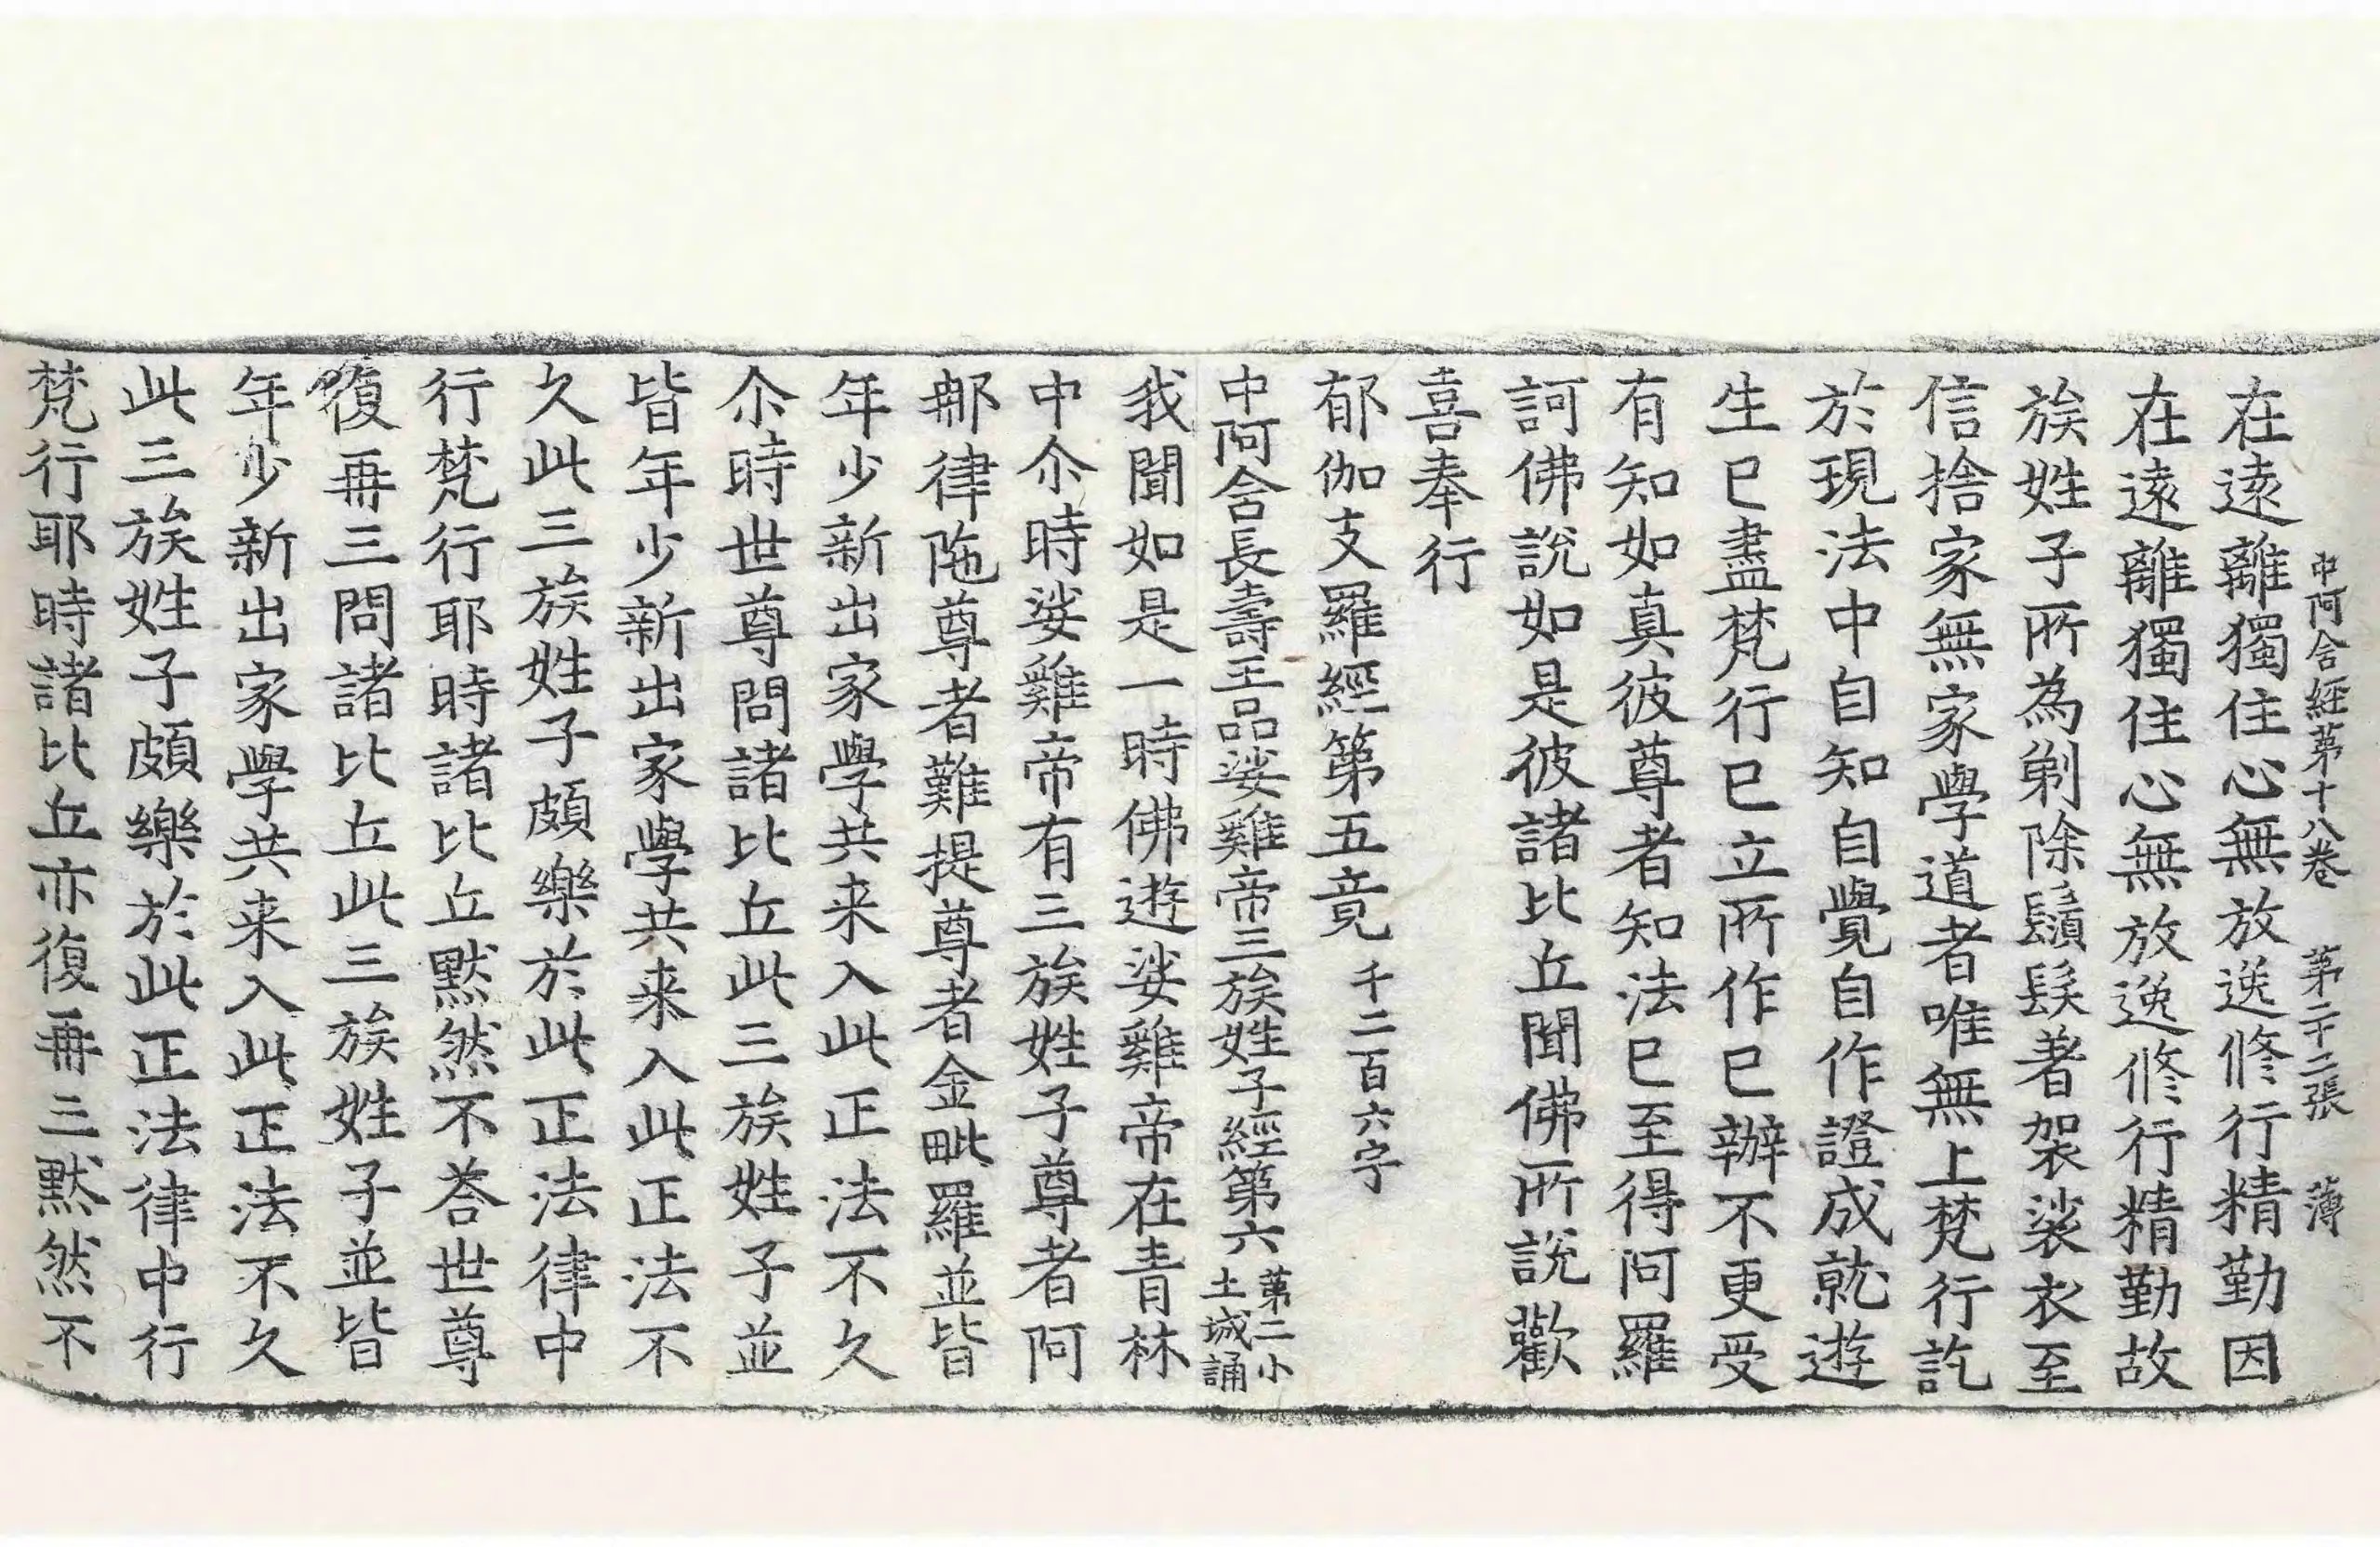 中阿含經第十八卷 第二十二張 薄
在遠離獨住心無放逸修行精勤因
在遠離獨住心無放逸修行精勤故
族姓子所為剃除鬚髮著袈裟衣至
信捨家無家學道者唯無上梵行訖
於現法中自知自覺自作證成就遊
生已盡梵行已立所作已辦不更受
有知如真彼尊者知法已至得阿羅
訶佛說如是彼諸比丘聞佛所說歡
喜奉行
郁伽支羅經第五竟 千二百六字
中阿含長壽王品娑雞帝三族姓子經第六 第二小土城誦
我聞如是一時佛遊娑雞帝在青林
中尒時娑雞帝有三族姓子尊者阿
那律陁尊者難提尊者金毗羅並皆
年少新出家學共来入此正法不久
尒時世尊問諸比丘此三族姓子並
皆年少新出家學共来入此正法不
久此三族姓子頗樂於此正法律中
行梵行耶時諸比丘黙然不荅世尊
復再三問諸比丘此三族姓子並皆
年少新出家學共来入此正法不久
此三族姓子頗樂於此正法律中行
梵行耶時諸比丘亦復再三黙然不